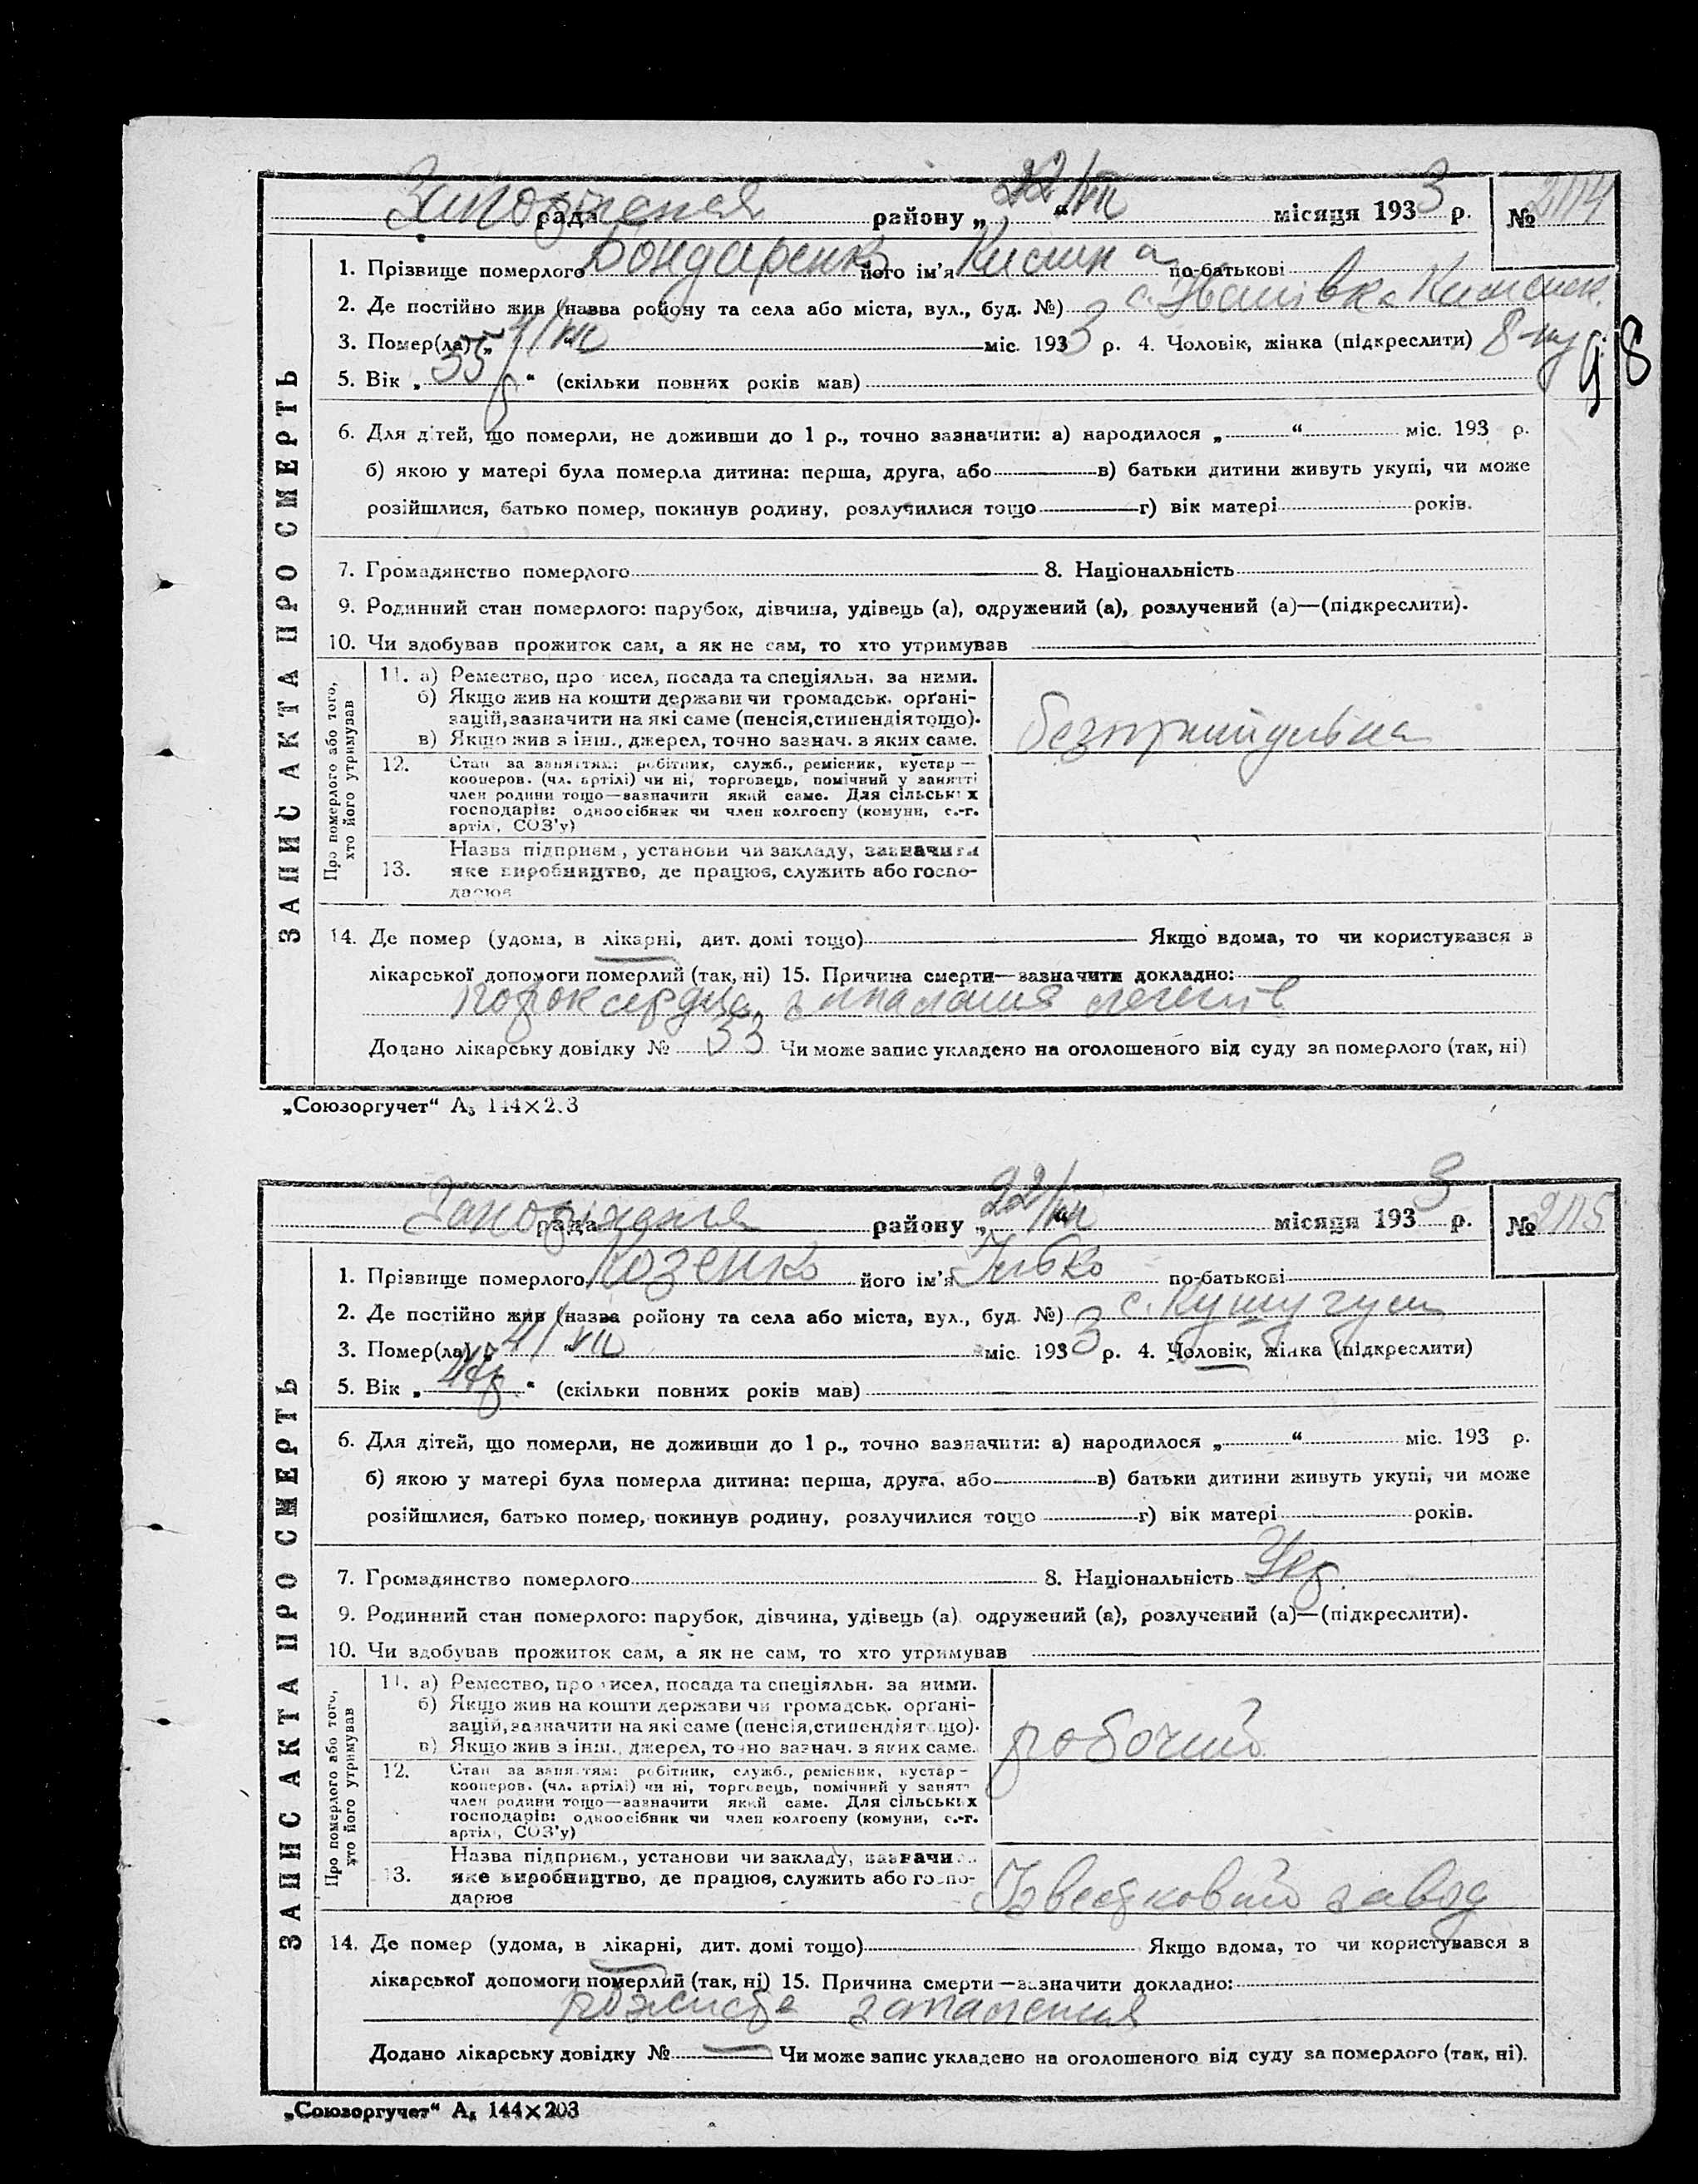 Запорізька рада району „22/VII“ місяця 1933 р. № 2114
1. Прізвище померлого Бондаренко його ім'я по-батькові
2. Де постійно жив (назва району та села або міста, вул., буд. №) с. Іванівка
3. Помер(ла) „4/VII“ міс. 1933 р. 4. Чоловік, жінка (підкреслити)
98
5. Вік „55 р“ (скільки повних років мав)
6. Для дітей, що померли, не доживши до 1 р., точно зазначити: а) народилося „ “ міс. 193 р.
б) якою у матері була померла дитина: перша, друга, або в) батьки дитини живуть укупі, чи може
розійшлися, батько помер, покинув родину, розлучилися тощо г) вік матері років.
7. Громадянство померлого 8. Національність
9. Родинний стан померлого: парубок, дівчина, удівець (а), одружений (а), розлучений (а)—(підкреслити).
10. Чи здобував прожиток сам, а як не сам, то хто утримував
ЗАПИС АКТА ПРО СМЕРТЬ
Про померлого або того, хто його утримував
11. а) Ремество, про исел, посада та спеціяльн. за ними.
б) Якщо жив на кошти держави чи громадськ. орґані-
зацій, зазначити на які саме (пенсія, стипендія тощо).
в) Якщо жив з інш., джерел, точно зазнач. з яких саме.
безпритульна
12. Стан за заняттям: робітник, служб., ремісник, кустар—
кооперов. (чл. артілі) чи ні, торговець, помічний у занятті
член родини тощо—зазначити який саме. Для сільських
господарів: одноосібник чи член колгоспу (комуни, с.-г.
артілі, СОЗ'у)
13. Назва підприєм., установи чи закладу, зазначити
яке виробництво, де працює, служить або госпо-
дарює
14. Де помер (удома, в лікарні, дит. домі тощо) Якщо вдома, то чи користувався в
лікарської допомоги померлий (так, ні) 15. Причина смерти—зазначити докладно:
порок сердца, запалення легенів
Додано лікарську довідку № 53 Чи може запис укладено на оголошеного від суду за померлого (так, ні)
„Союзоргучет“ А5 144×203
Запорізька рада району „22/VII“ місяця 1933 р. № 2115
1. Прізвище померлого Козенко його ім'я по-батькові
2. Де постійно жив (назва району та села або міста, вул., буд. №) с. Кушугум
3. Помер(ла) „4/VII“ міс. 1933 р. 4. Чоловік, жінка (підкреслити)
5. Вік „44 р.“ (скільки повних років мав)
6. Для дітей, що померли, не доживши до 1 р., точно зазначити: а) народилося „ “ міс. 193 р.
б) якою у матері була померла дитина: перша, друга, або в) батьки дитини живуть укупі, чи може
розійшлися, батько помер, покинув родину, розлучилися тощо г) вік матері років.
7. Громадянство померлого 8. Національність Укр.
9. Родинний стан померлого: парубок, дівчина, удівець (а), одружений (а), розлучений (а)—(підкреслити).
10. Чи здобував прожиток сам, а як не сам, то хто утримував
ЗАПИС АКТА ПРО СМЕРТЬ
Про померлого або того, хто його утримував
11. а) Ремество, про исел, посада та спеціяльн. за ними.
б) Якщо жив на кошти держави чи громадськ. орґані-
зацій, зазначити на які саме (пенсія, стипендія тощо).
в) Якщо жив з інш., джерел, точно зазнач. з яких саме.
робочий
12. Стан за заняттям: робітник, служб., ремісник, кустар—
кооперов. (чл. артілі) чи ні, торговець, помічний у занятті
член родини тощо—зазначити який саме. Для сільських
господарів: одноосібник чи член колгоспу (комуни, с.-г.
артілі, СОЗ'у)
13. Назва підприєм., установи чи закладу, зазначи
яке виробництво, де працює, служить або госпо-
дарює
Ізвестковий завод
14. Де помер (удома, в лікарні, дит. домі тощо) Якщо вдома, то чи користувався з
лікарської допомоги померлий (так, ні) 15. Причина смерти—зазначити докладно:
рожисте запалення
Додано лікарську довідку № — Чи може запис укладено на оголошеного від суду за померлого (так, ні).
„Союзоргучет“ А5 144×203